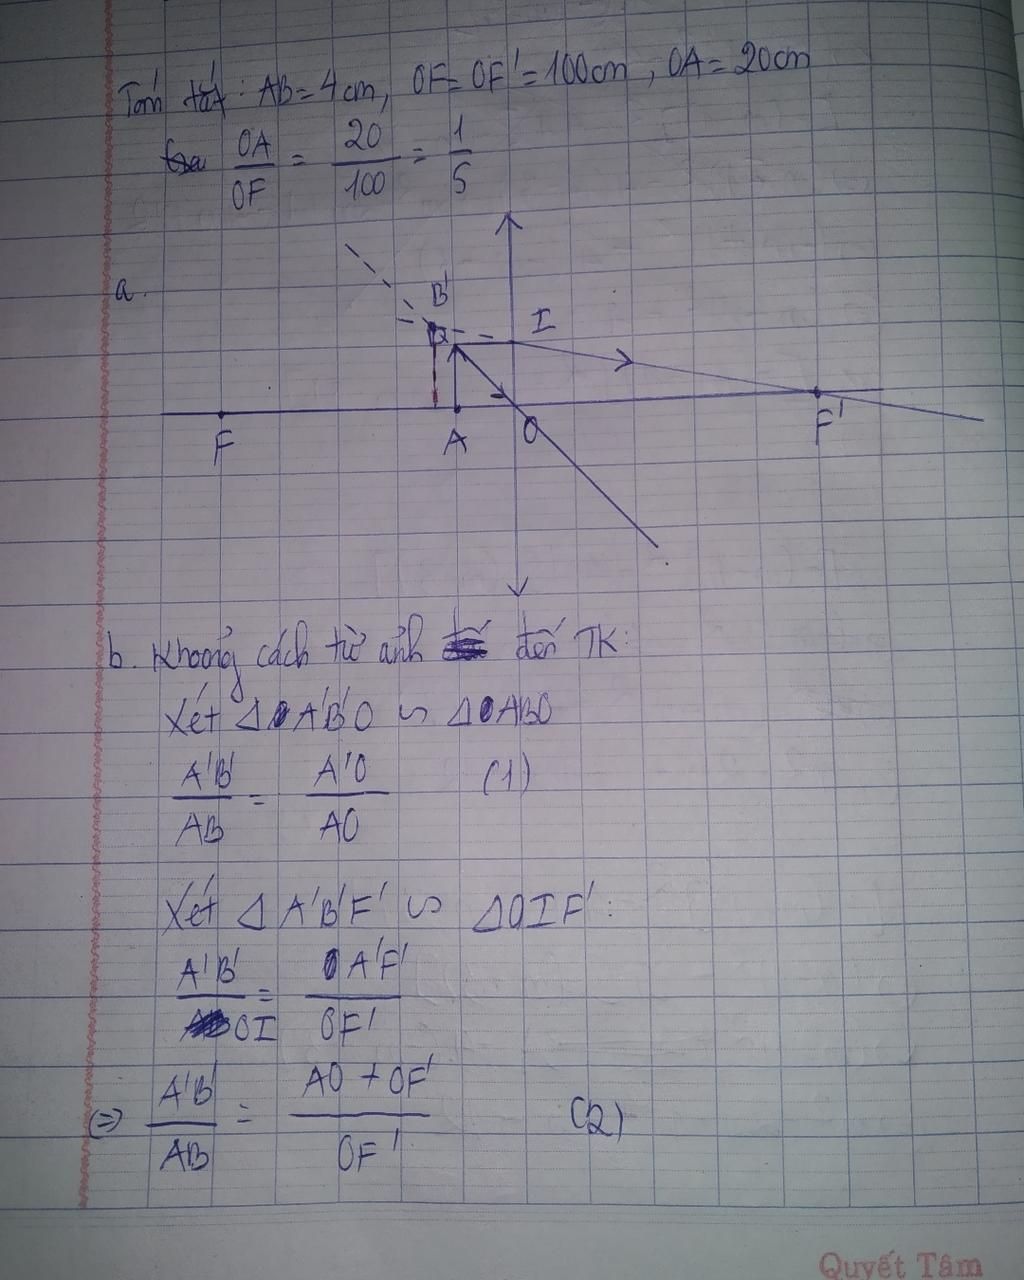 Tóm tắt: AB = 4cm, OF = OF' = 100cm, OA = 20cm
OA/OF = 20/100 = 1/5
a.
B'
I
F
A
O
F'
b. Khoảng cách từ ảnh đến TK:
Xét ΔA'B'O ∽ ΔABO
A'B'/AB = A'O/AO (1)
Xét ΔA'B'F' ∽ ΔOIF':
A'B'/OI = A'F'/OF'
(=) A'B'/AB = AO + OF'/OF' (2)
Quyết Tâm